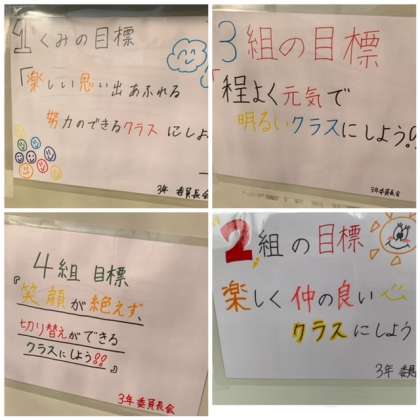 1くみの目標
「楽しい思い出あふれる
努力のできるクラスにしよ
3年 委員長会
3組の目標
「程よく元気で
明るいクラスにしよう!!
3年 委員長会
4組 目標
『笑顔が絶えず、
切り替えができる
クラスにしよう!!』
3年 委員長会
2組の目標
楽しく仲の良い
クラスにしよう
3年 委員